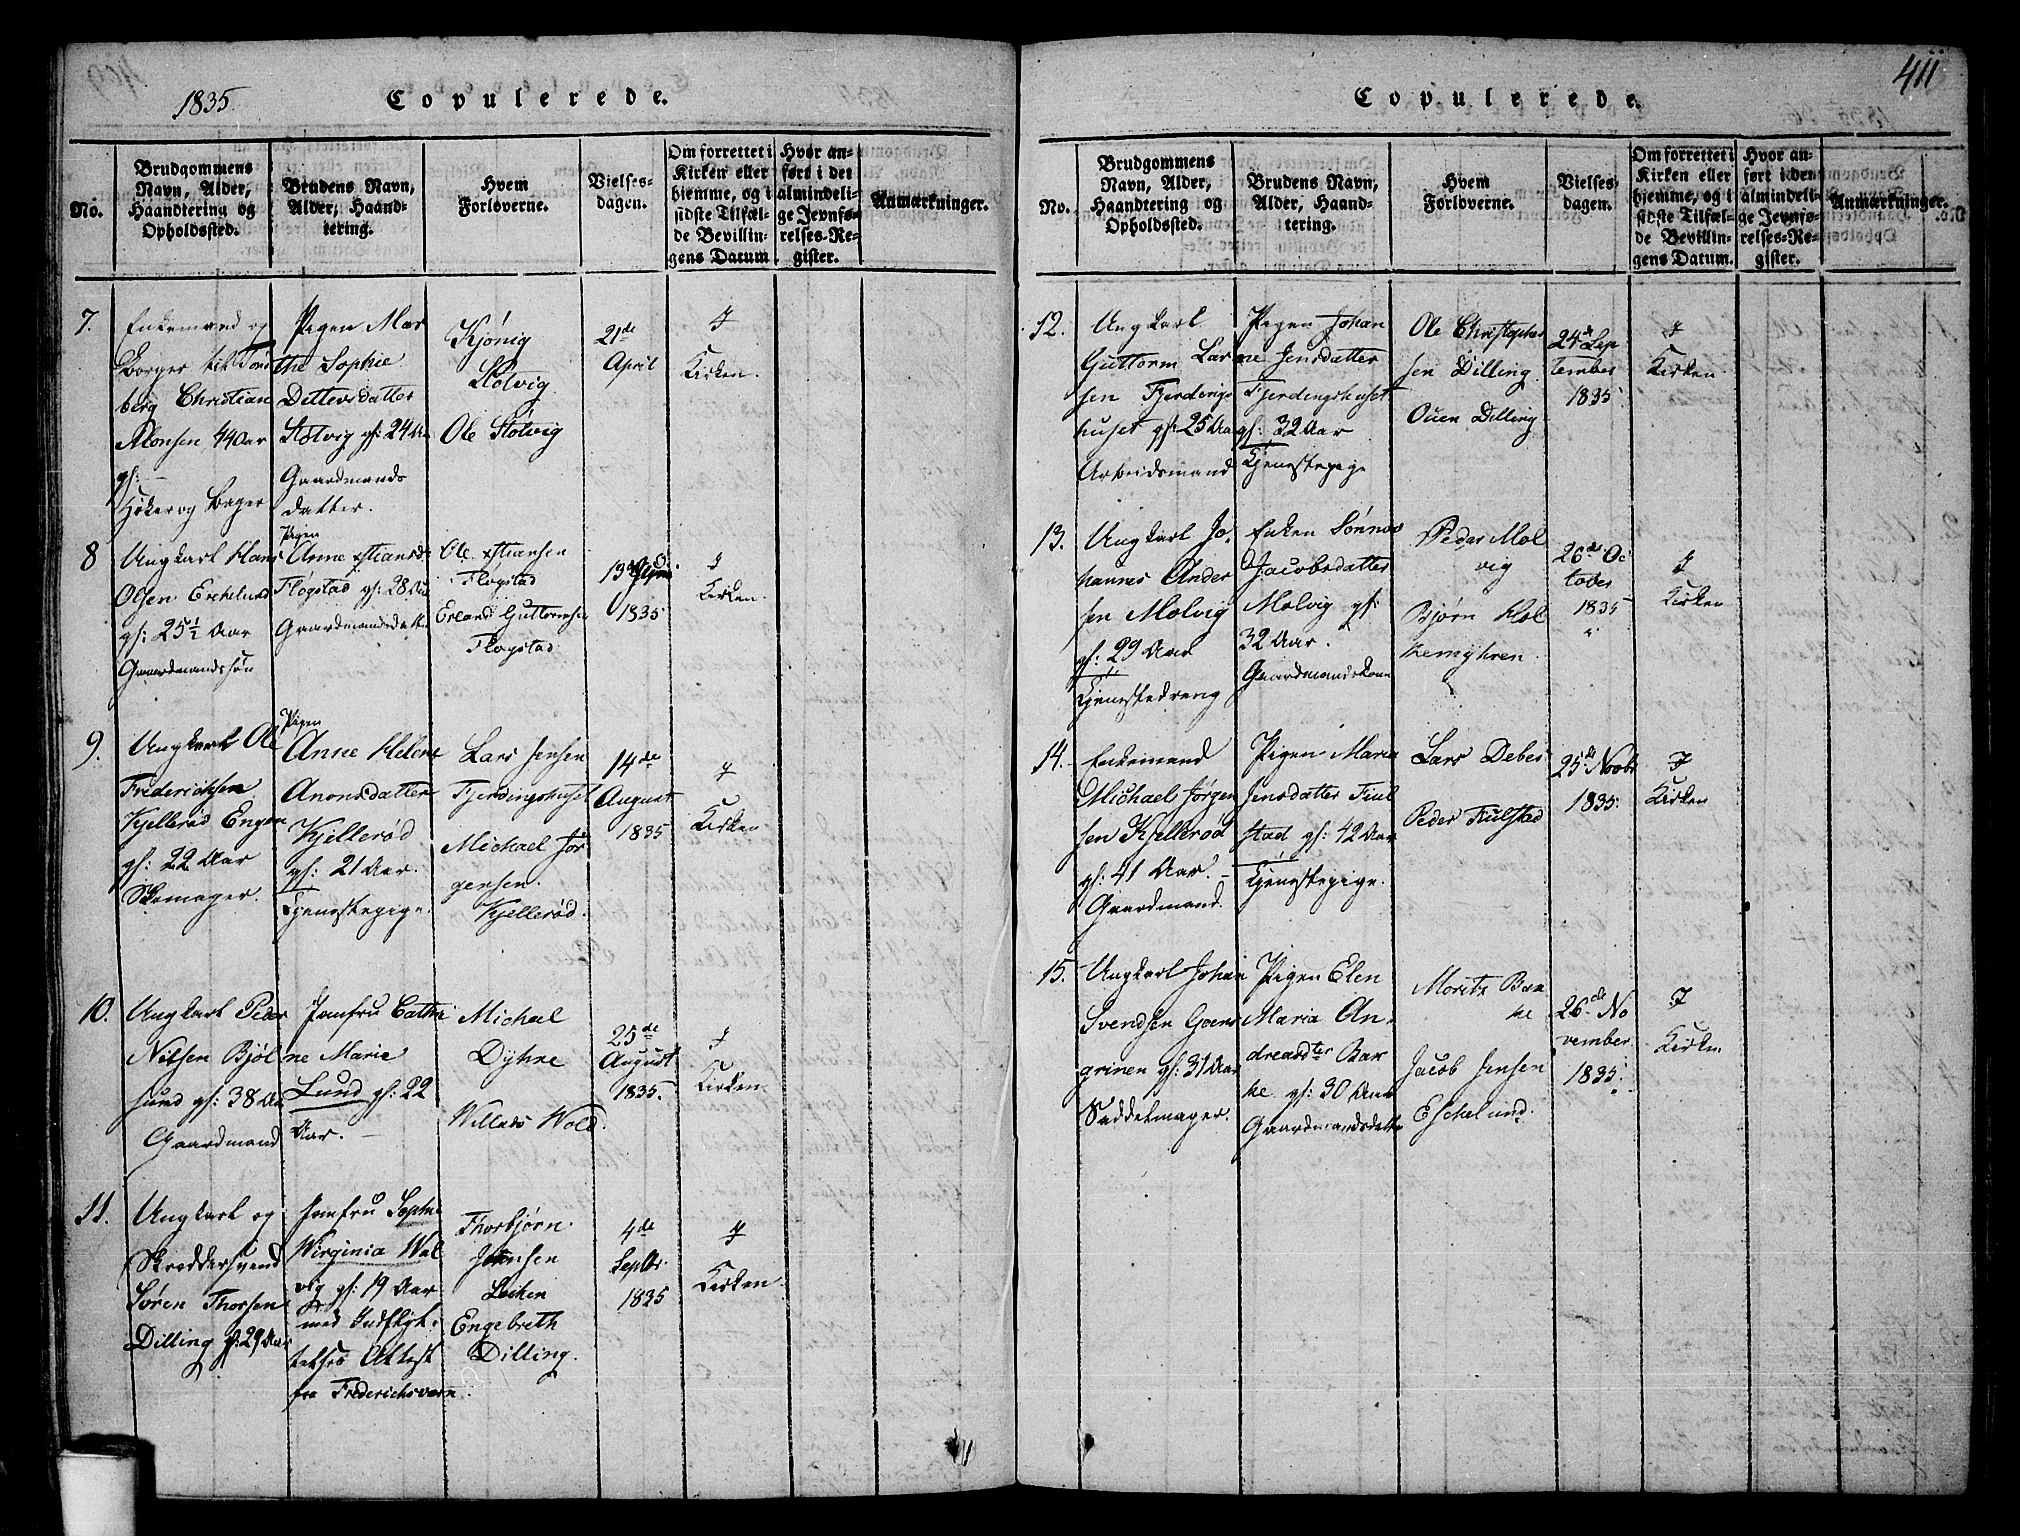 1835
Copulerede.
No.
Brudgommens
Navn, Alder,
Haandtering og
Opholdssted.
Brudens Navn,
Alder, Haand-
tering.
Hvem
Forloverne.
Vielses-
dagen.
Om forrettet i
Kirken eller
hjemme, og i
sidste Tilfæl-
de Bevillin-
gens Datum
Hvor an-
ført i det
almindeli-
ge Jevnfø-
relses-Re-
gister.
Anmærkninger.
7.
Enkemand og
Borger til Tøns
berg Christian
Monsen 44 Aar
gl: –
Høker og Bager
Pigen Mar
the Sophie
Detlevsdatter
Støtvig gl: 24 Aar
Gaardmands
datter.
Kjønig
Støtvig
Ole Støtvig
21de
April
I
Kirken.
8
Ungkarl Hans
Olsen Eschelund
gl: 25½ Aar
Gaardmandssøn
Pigen
Anne Xstiansd:
Fløgstad gl: 28 Aar
Gaardmandsdatter
Ole Xstiansen
Fløgstad
Erland Guttormsen
Flogstad
13de
1835
I
Kirken.
9.
Ungkarl Ole
Frederichsen
Kjellerød Engen
gl: 22 Aar
Skomager.
Pigen
Anne Helene
Anonsdatter
Kjellerød
gl: 21 Aar.
Tjenestepige.
Lars Jensen
Fjerdingshuset
Michael Jør
gensen.
Kjellerød.
14de
August
1835
I
Kirken
10.
Ungkarl Peder
Nilsen Bjøl
sund gl: 38 Aar
Gaardmand
Jomfru Cathri
ne Marie
Lund gl: 22
Aar. –
Michael
Dyhne
Willads Wold.
25de
August
1835.
I
Kirken
11.
Ungkarl og
Skreddersvend
Søren Thorsen
Dilling gl. 29 Aar
Jomfru Sophie
Wirginia Wal
vig gl: 19 Aar
med Indflyt-
telses Attest
fra Frederichsværn
Thorbjørn
Jensen
Engebreth
Dilling.
4de
Septbr.
1835
I
Kirken
411
Copulerede.
No.
Brudgommens
Navn, Alder,
Haandtering og
Opholdssted.
Brudens Navn,
Alder, Haand-
tering.
Hvem
Forloverne.
Vielses-
dagen.
Om forrettet i
Kirken eller
hjemme, og i
sidste Tilfæl-
de Bevillin-
gens Datum.
Hvor an-
ført i den
almindeli-
ge Jevnfø-
relses-Re-
gister.
Anmærkninger.
12.
Ungkarl
Guttorm Lar
sen Fjerdings
huset gl: 25 Aar
Arbeidsmand
Pigen Johan
ne Jensdatter
Fjerdingshuset
gl: 32 Aar
Tjenestepige
Ole Christopher
sen Dilling
Ouen Dilling
24de Sep
tember
1835
I
Kirken
13.
Ungkarl Jo-
hannes Ander
sen Molvig
gl: 29 Aar
Tjenestedreng
Enken Sønnov
Jacobsdatter
Molvig gl:
32 Aar.
Gaardmandskone
Peder Mol
vig
Bjørn Hol
kemyhren
26de Oc
tober
1835
I
Kirken
14.
Enkemand
Michael Jørgen
sen Kjellerød
gl: 41 Aar. –
Gaardmand.
Pigen Maria
Jensdatter Fiul
stad gl: 42 Aar
Tjenestepige.
Lars Debes
Peder Fiulstad
25de Novbr
1835:
I
Kirken
15.
Ungkarl Johan
Svendsen Goens
grinen gl: 31 Aar
Saddelmager.
Pigen Elen
Maria An-
dreasdter Bak
ke gl: 30 Aar
Gaardmandsdatter
Moritz Bak
ke
Jacob Jensen
Eschelund.
26de No
vember
1835.
I
Kirken